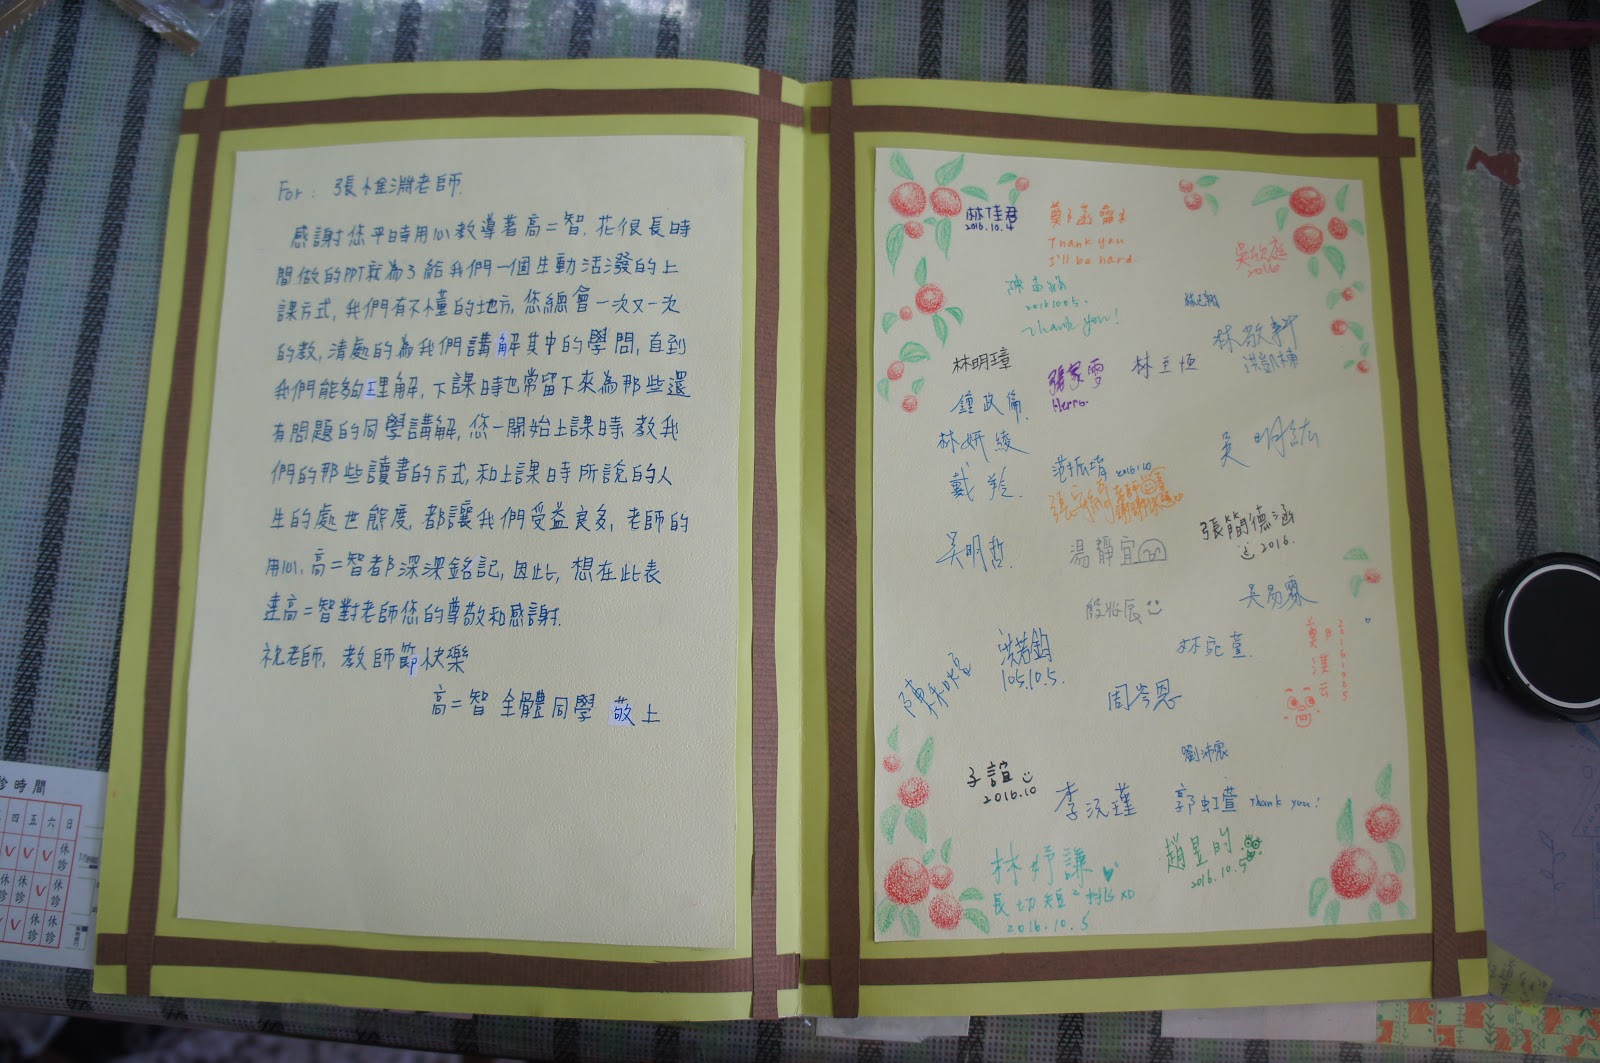 For: 張惟淵老師.
感謝您平時用心教導著高二智,花很長時
間做的PPT就為了給我們一個生動活潑的上
課方式,我們有不懂的地方,您總會一次又一次
的教,清處的為我們講解其中的學問,直到
我們能夠理解,下課時也常留下來為那些還
有問題的同學講解,您一開始上課時教我
們的那些讀書的方式,和上課時所說的人
生的處世態度,都讓我們受益良多,老師的
用心,高二智都深深銘記,因此,想在此表
達高二智對老師您的尊敬和感謝.
祝老師,教師節快樂
高二智 全體同學 敬上
林佳君
2016.10.4
Thank you
I'll be hard.
吳欣庭
2016
20161005.
Thank you!
林敬軒
洪凱棟
林明璋
張家雯
Herro.
林主恒
鍾政倫
林妍綾
吳明紘
戴羚.
范振堉 2016.10
張簡德涵
2016.
吳明哲
湯靜宜
殷兆辰
吳易霖
洪若鈞
105.10.5.
林宛萱
20161005
周岑恩
劉沛宸
子誼
2016.10
李沅瑾
郭虹萱 Thank you!
趙昱昀
2016.10.5
林妤謙
2016.10.5
診時間
四 五 六 日
休診